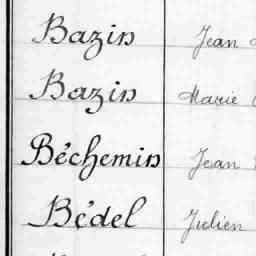 Bazin Jean
Bazin Marie
Béchemin Jean
Bédel Julien